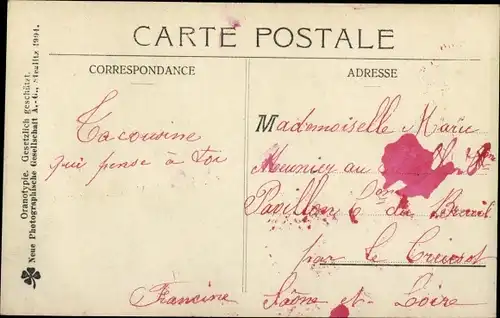 CARTE POSTALE
CORRESPONDANCE
ADRESSE
Ta cousine
qui pense à toi
Francine
Mademoiselle Marie
Meunier au
Pavillon C du Breuil
par le Creusot
Saône et Loire
Oranotypie. Gesetzlich geschützt.
Neue Photographische Gesellschaft A.-G., Steglitz 1904.